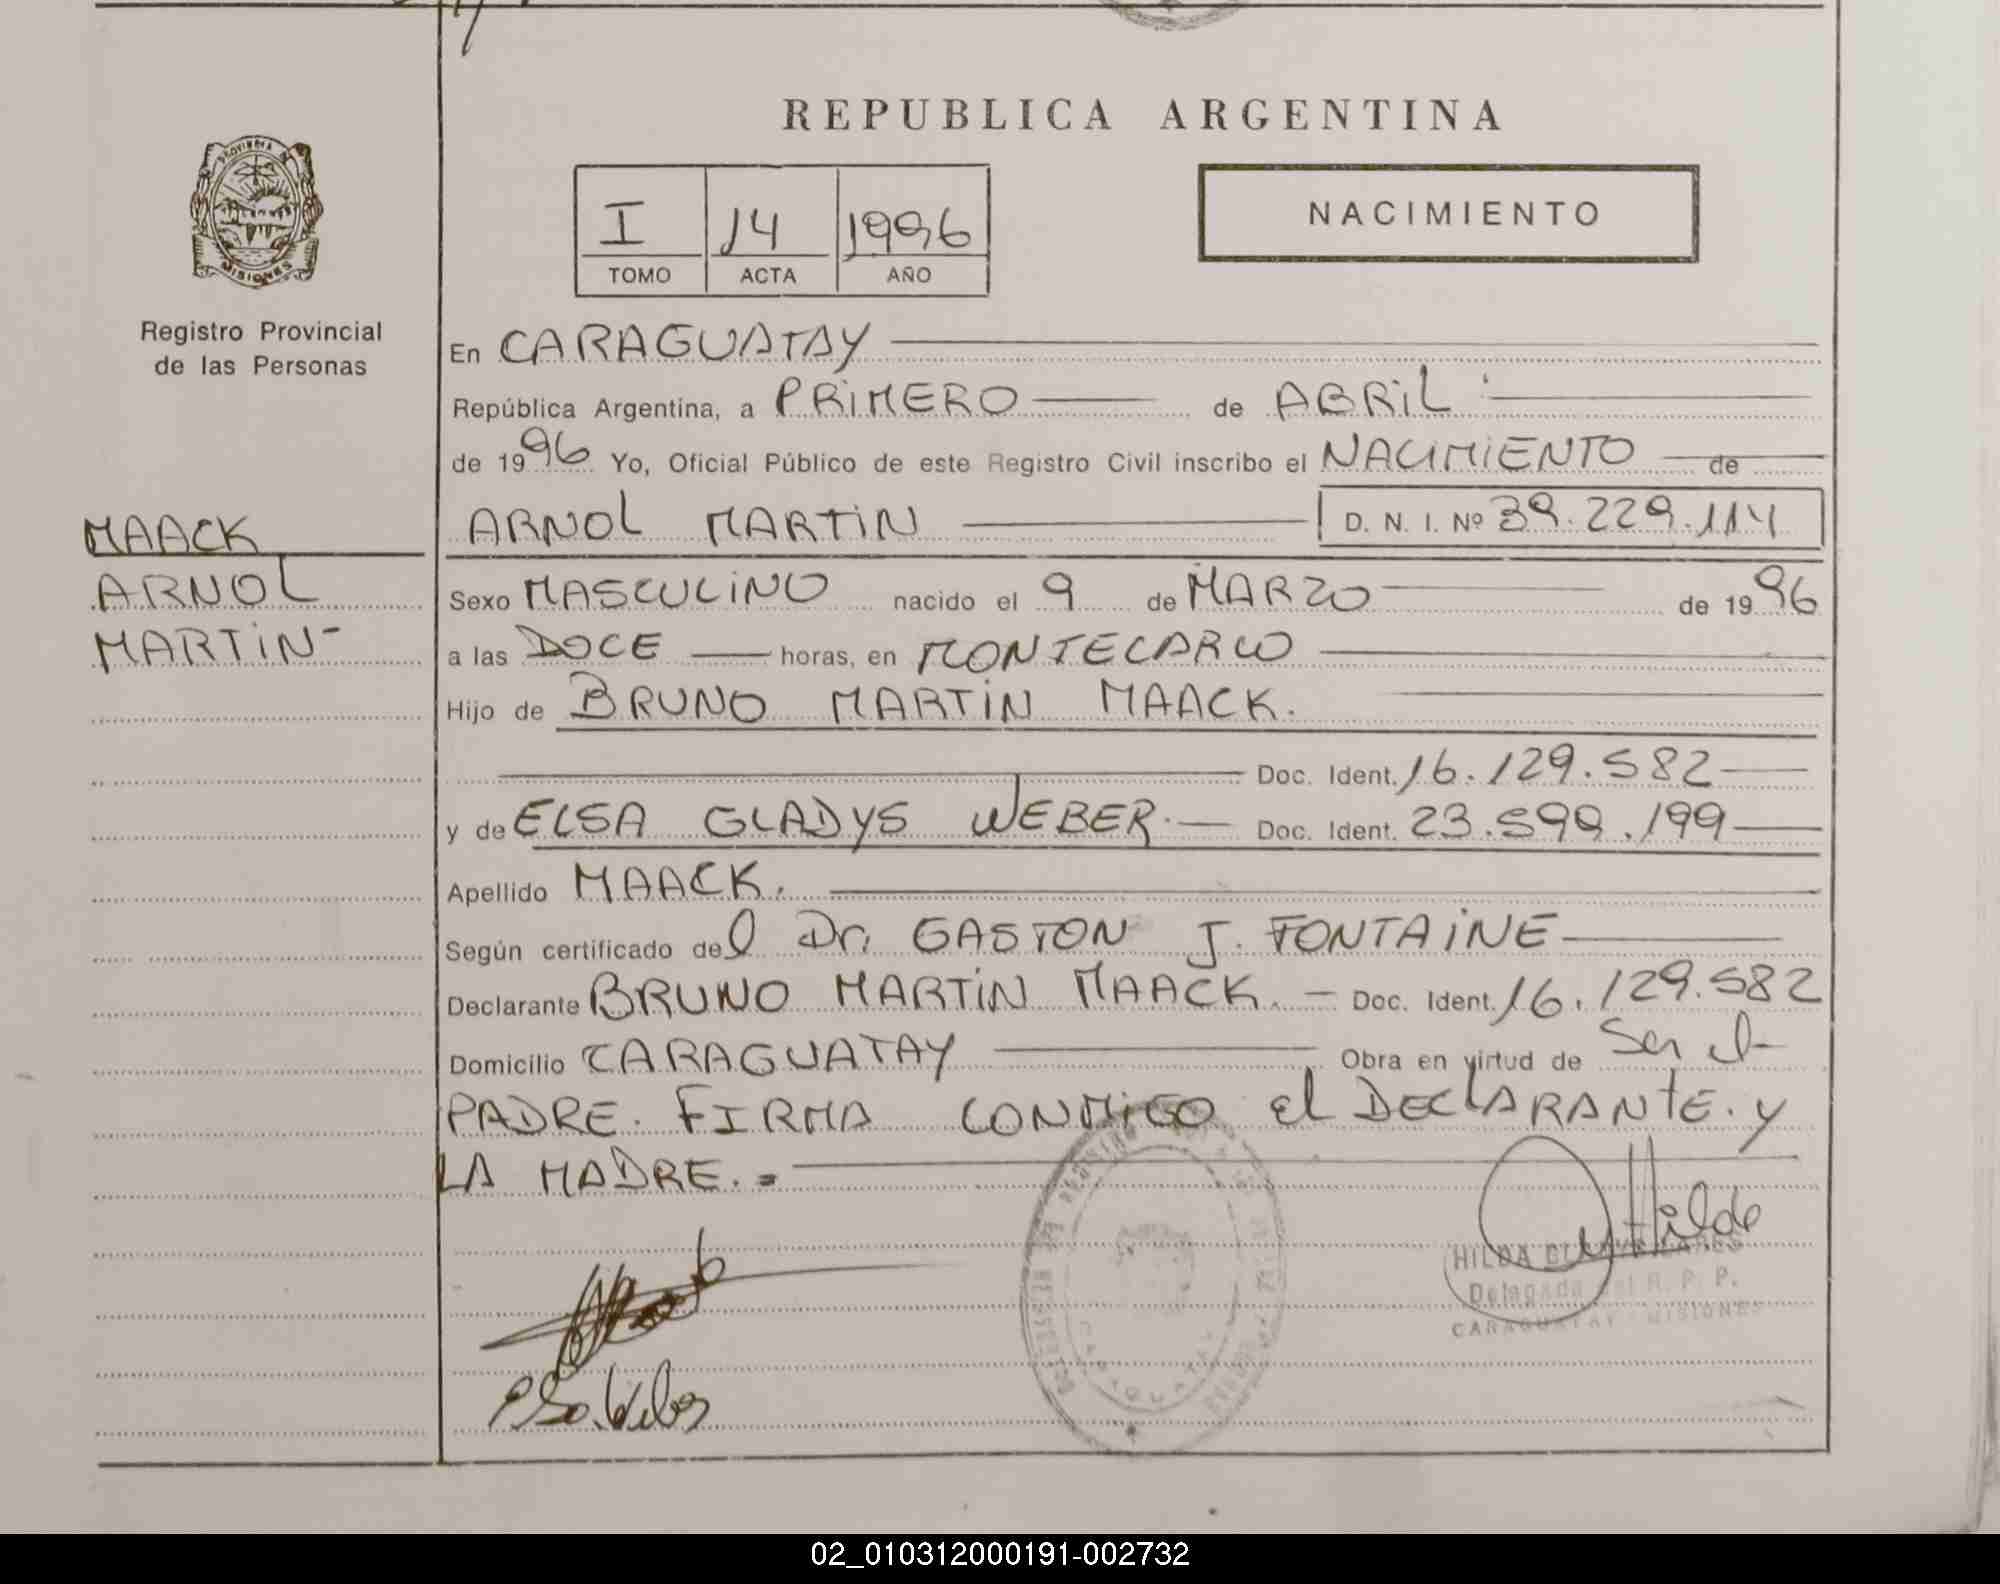 REPUBLICA ARGENTINA
PROVINCIA DE
MISIONES
I 14 1996
TOMO ACTA AÑO
NACIMIENTO
Registro Provincial
de las Personas
MAACK
ARNOL
MARTiN-
En CARAGUATAY
República Argentina, a PRiMERO de ABRiL
de 1996 Yo, Oficial Público de este Registro Civil inscribo el NACiMiENTO de
ARNOL MARTiN D. N. I. Nº 39.229.114
Sexo MASCULiNO nacido el 9 de MARZO de 1996
a las DOCE horas, en MONTECARLO
Hijo de BRUNO MARTiN MAACK.
Doc. Ident. 16.129.582
y de ELSA GLADYS WEBER.- Doc. Ident. 23.599.199
Apellido MAACK.
Según certificado del Dr. GASTON J. FONTAiNE
Declarante BRUNO MARTiN MAACK.- Doc. Ident. 16.129.582
Domicilio CARAGUATAY Obra en virtud de Ser el
PADRE. FIRMA CONMiGO El DEClARANtE. y
LA MADRE.=
Hilda
HILDA
Delegada del R. P. P.
CARAGUATAY - MISIONES
CARAGUATAY
02_010312000191-002732